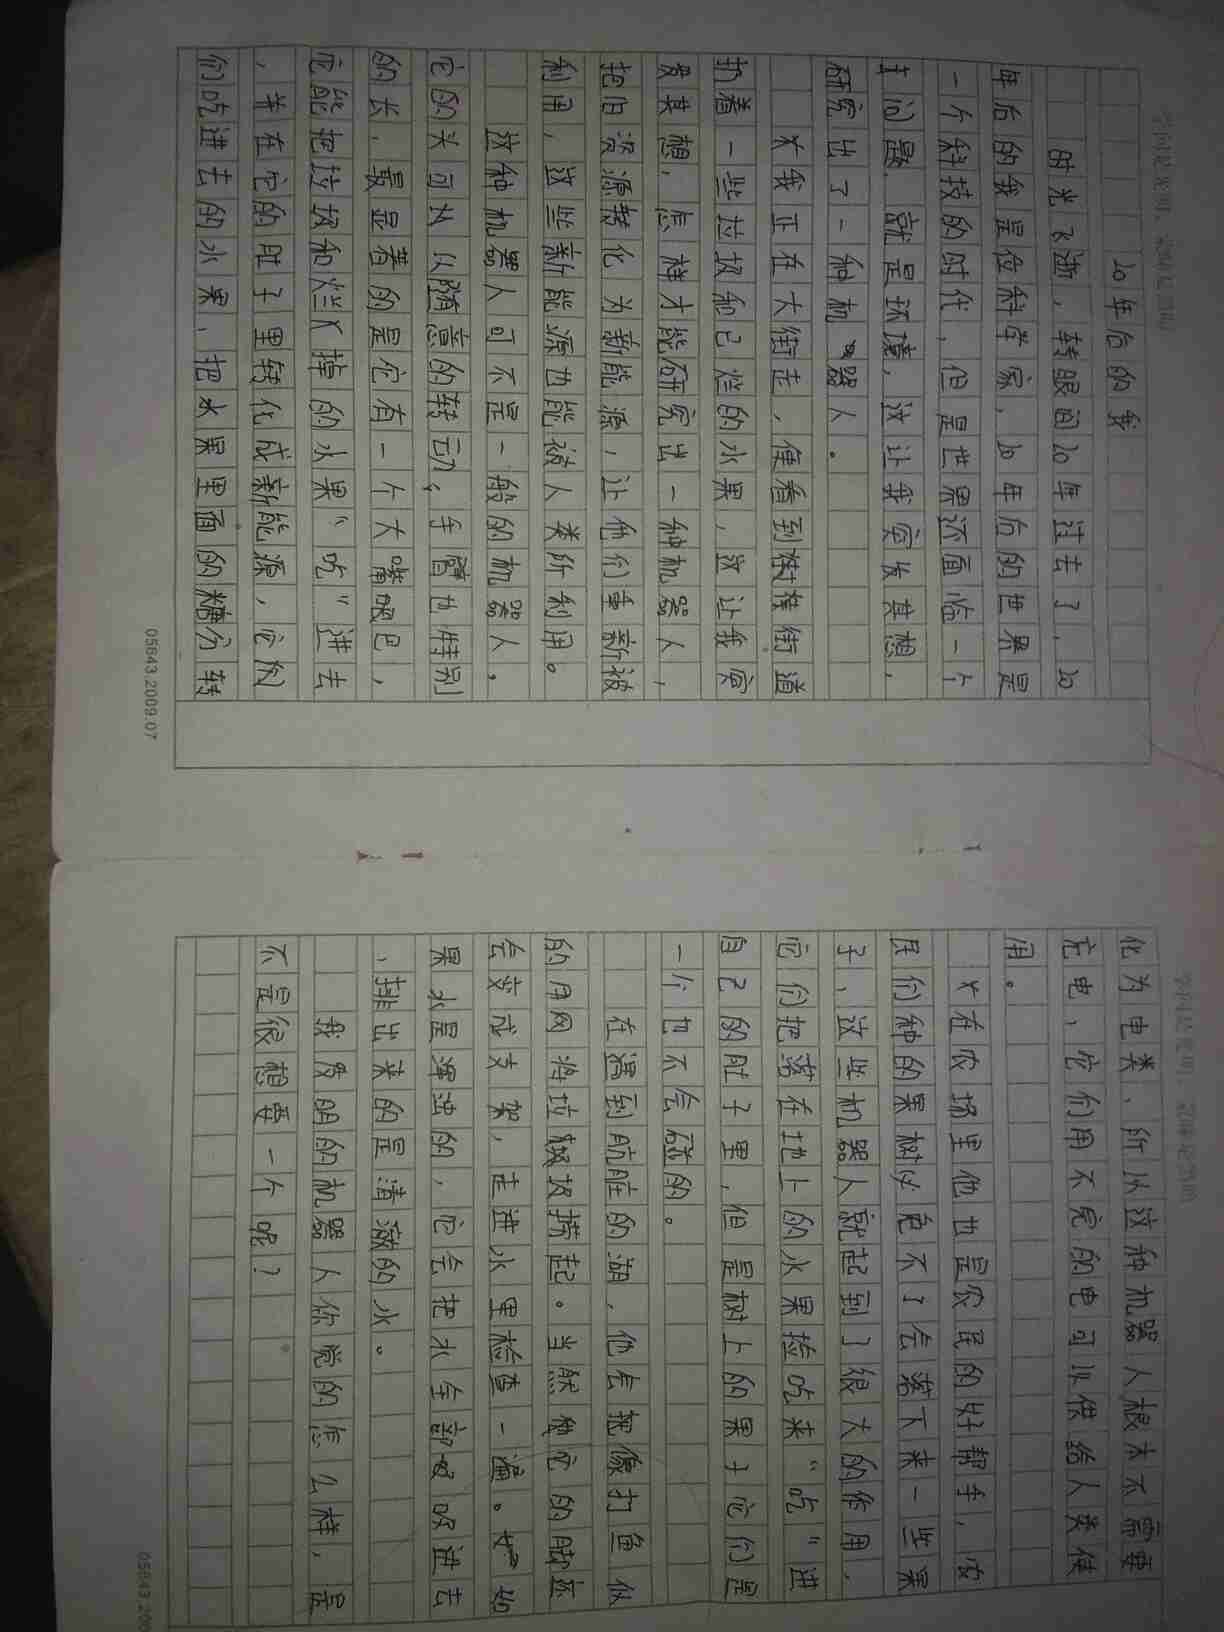 20年后的我
时光飞逝，转眼间20年过去了，20
年后的我是位科学家，20年后的世界是
一个科技的时代，但是世界还面临一个
问题，就是环境，这让我突发其想，
研究出了一种机器人。
我正在大街走，便看到街道
扔着一些垃圾和已烂的水果，这让我突
发其想，怎样才能研究出一种机器人，
把旧资源转化为新能源，让他们重新被
利用，这些新能源也能被人类所利用。
这种机器人可不是一般的机器人，
它的头可从以随意的转动，手臂也特别
的长，最显着的是它有一个大嘴吧巴，
它能把垃圾和烂掉的水果“吃”进去
，并在它的肚子里转化成新能源，它们
们吃进去的水果，把水果里面的糖分转
化为电类，所以这种机器人根本不需要
充电，它们用不完的电可以供给人类使
用。
在农场里他也是农民的好帮手，农
民们种的果树必免不了会落下来一些果
子，这些机器人就起到了很大的作用，
它们把落在地上的水果捡吃来“吃”进
自己的肚子里，但是树上的果子它们是
一个也不会碰的。
在遇到肮脏的湖，他会把像打鱼似
的用网将垃圾圾捞起。当然它的脚还
会变成支架，走进水里检查一遍。如
果水是浑浊的，它会把水全部吸进去
，排出来的是清澈的水。
我发明的机器人你觉的怎么样，是
不是很想要一个呢？
05843.2009.07
05843.200